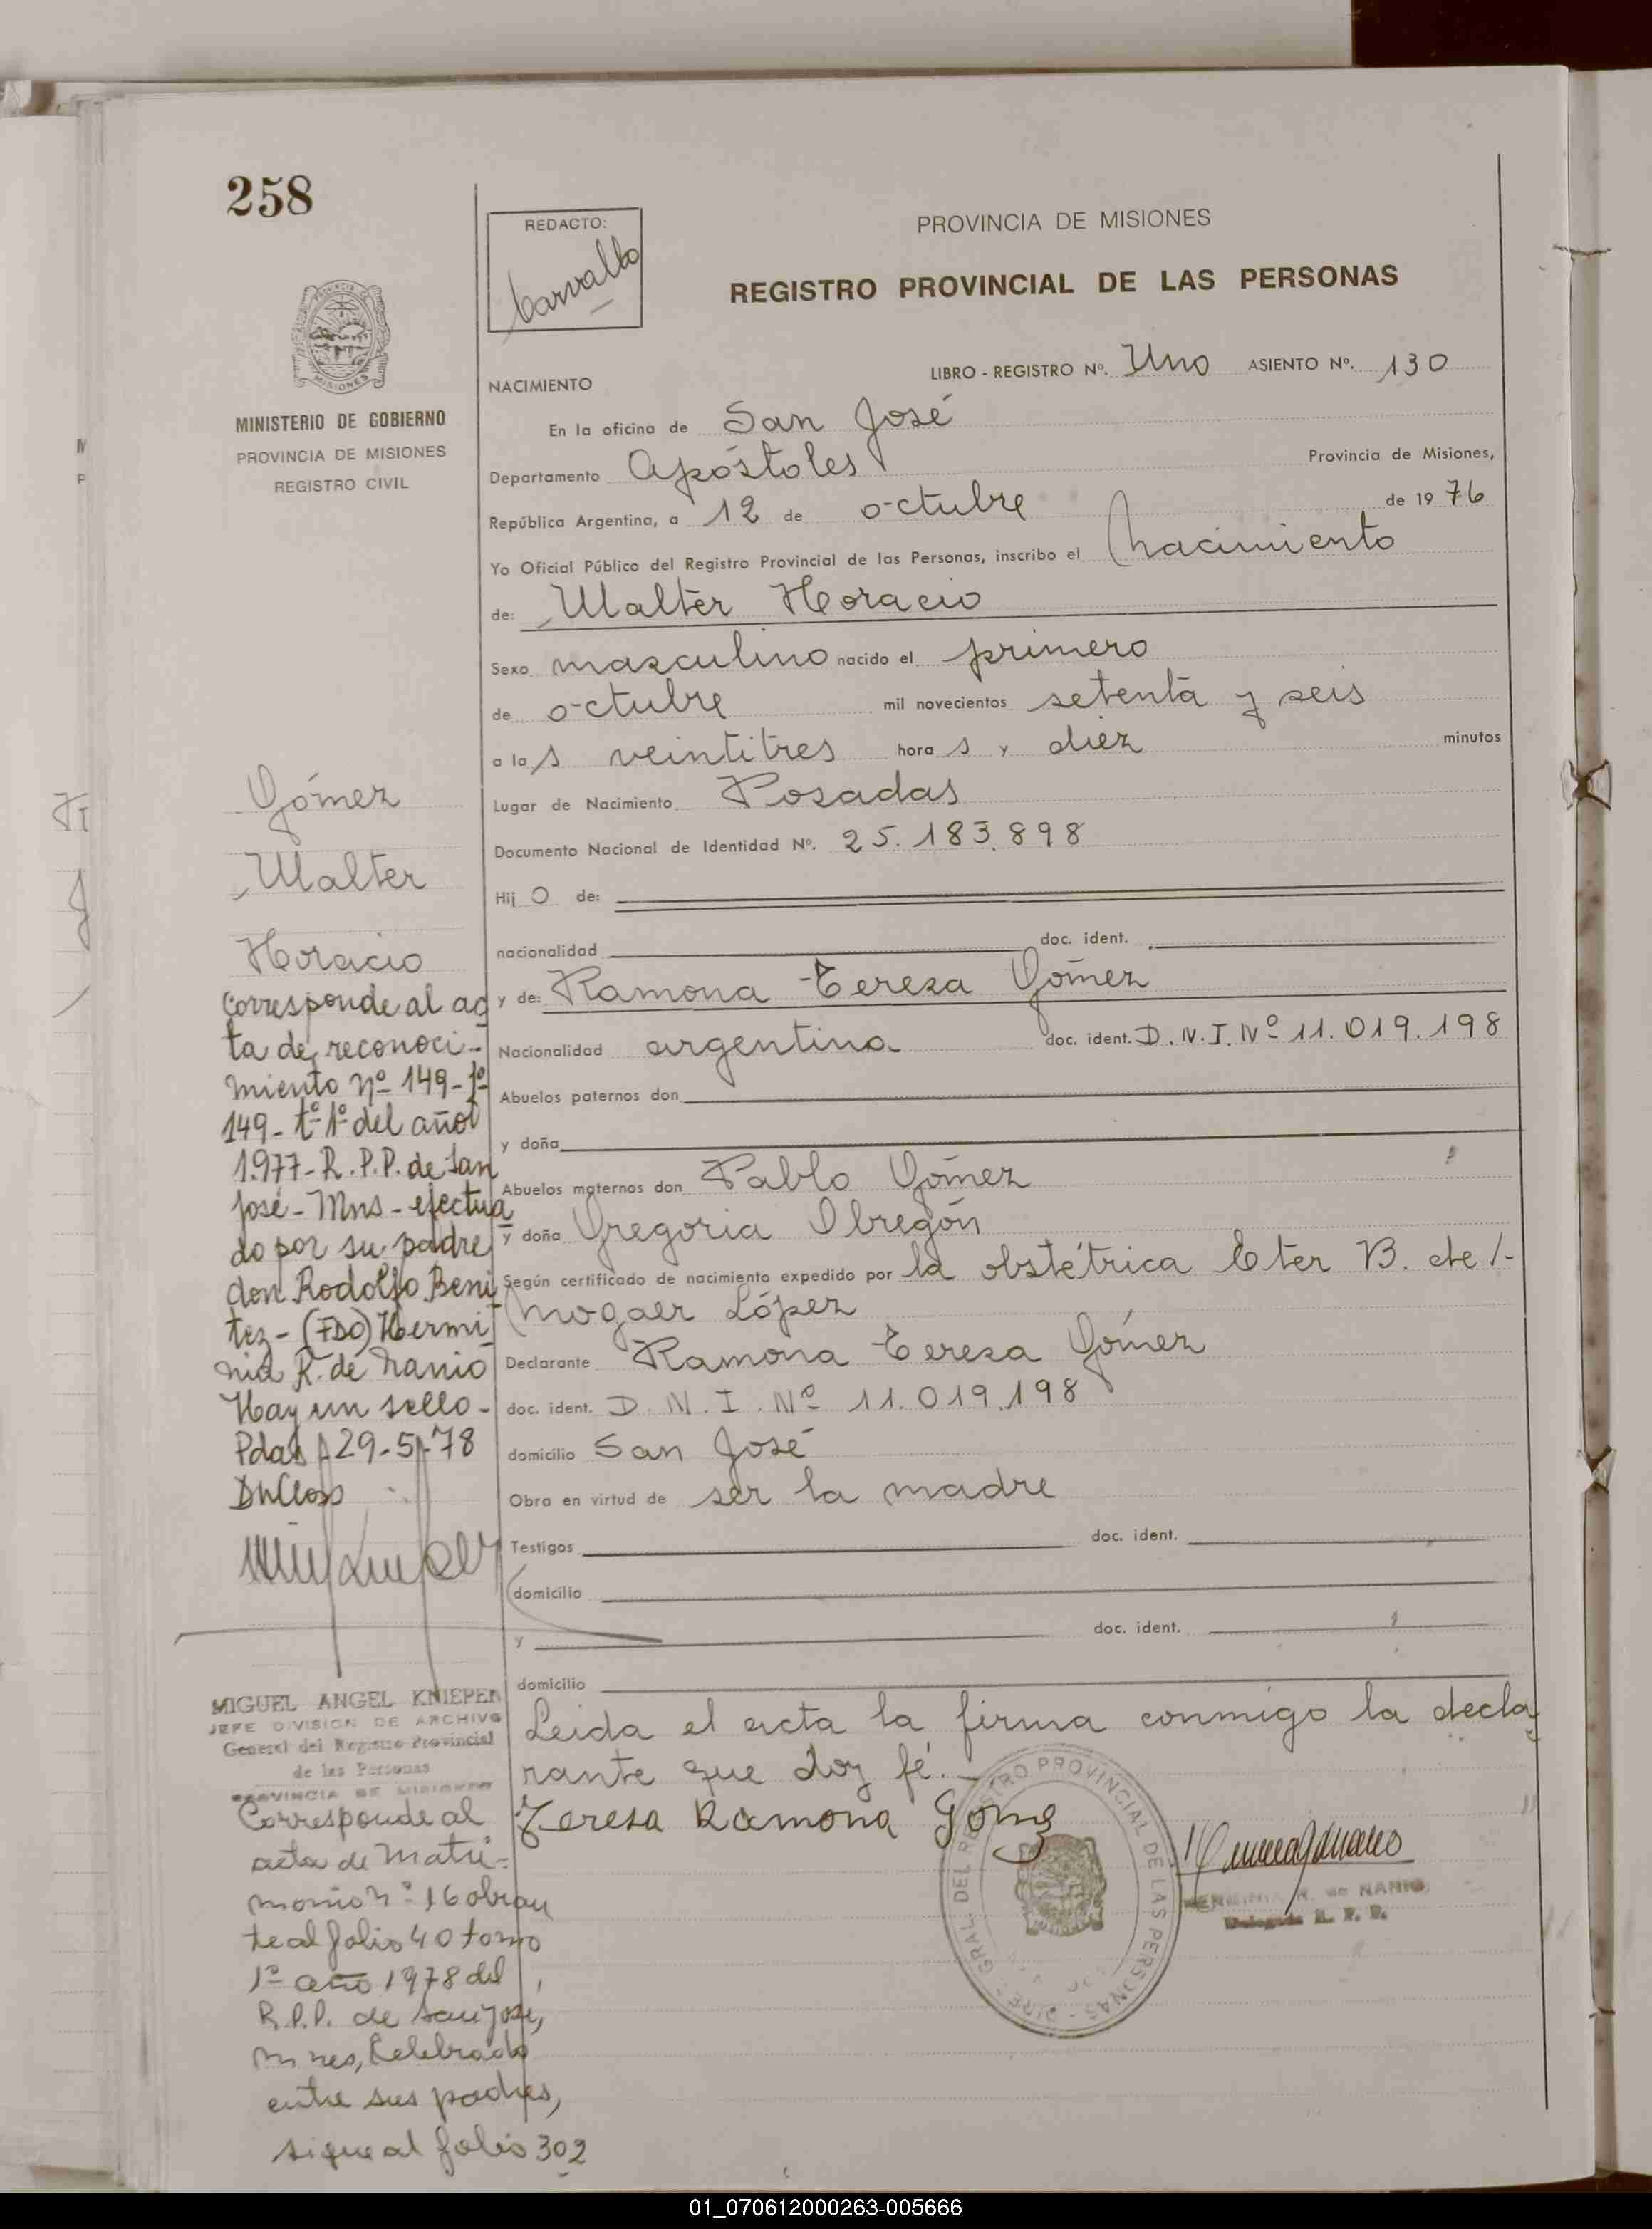 258
REDACTO:
Carvallo
PROVINCIA DE MISIONES
REGISTRO PROVINCIAL DE LAS PERSONAS
LIBRO - REGISTRO Nº. Uno ASIENTO Nº. 130
MINISTERIO DE GOBIERNO
PROVINCIA DE MISIONES
REGISTRO CIVIL
NACIMIENTO
En la oficina de San José
Departamento Apóstoles Provincia de Misiones,
República Argentina, a 12 de octubre de 1976
Yo Oficial Público del Registro Provincial de las Personas, inscribo el nacimiento
de: Walter Horacio
Sexo masculino nacido el primero
de octubre mil novecientos setenta y seis
a las veintitres horas y diez minutos
Lugar de Nacimiento Posadas
Documento Nacional de Identidad Nº. 25.183.898
Hijo de:
nacionalidad doc. ident.
y de: Ramona Teresa Gómez
Nacionalidad argentina doc. ident. D.N.I. Nº 11.019.198
Abuelos paternos don
y doña
Abuelos maternos don Pablo Gómez
y doña Gregoria Obregón
Según certificado de nacimiento expedido por la obstétrica Eter B. de /-
Mogaer López
Declarante Ramona Teresa Gómez
doc. ident. D.N.I. Nº 11.019.198
domicilio San José
Obra en virtud de ser la madre
Testigos doc. ident.
domicilio
y doc. ident.
domicilio
Leida el acta la firma conmigo la decla
rante que doy fé.-
Teresa Ramona Gomez
HERMINIA R. de NANIO
Delegada R. P. P.
DIREC. GRAL. DEL REGISTRO PROVINCIAL DE LAS PERSONAS
Gómez
Walter
Horacio
Corresponde al ac
ta de reconoci-
miento nº 149-fº
149- tº 1º del año
1.977- R.P.P. de San
José - Mns - efectua
do por su padre
don Rodolfo Beni
tez- (FDO) Hermi
nia R. de Nanio
Hay un sello-
Pdas 29-5-78
MIGUEL ANGEL KNIEPER
JEFE DIVISION DE ARCHIVO
General del Registro Provincial
de las Personas
PROVINCIA DE MISIONES
Corresponde al
acta de Matri-
monio nº 16 obran
te al folio 40 tomo
1º año 1978 del
R.P.P. de San José,
Mnes, Celebrado
entre sus padres,
sigue al folio 302
01_070612000263-005666